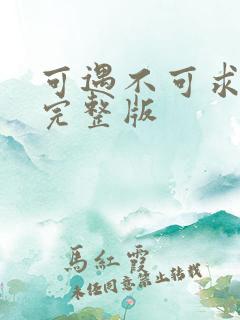 可遇不可求
完整版
馬紅霞
未经同意禁止转载